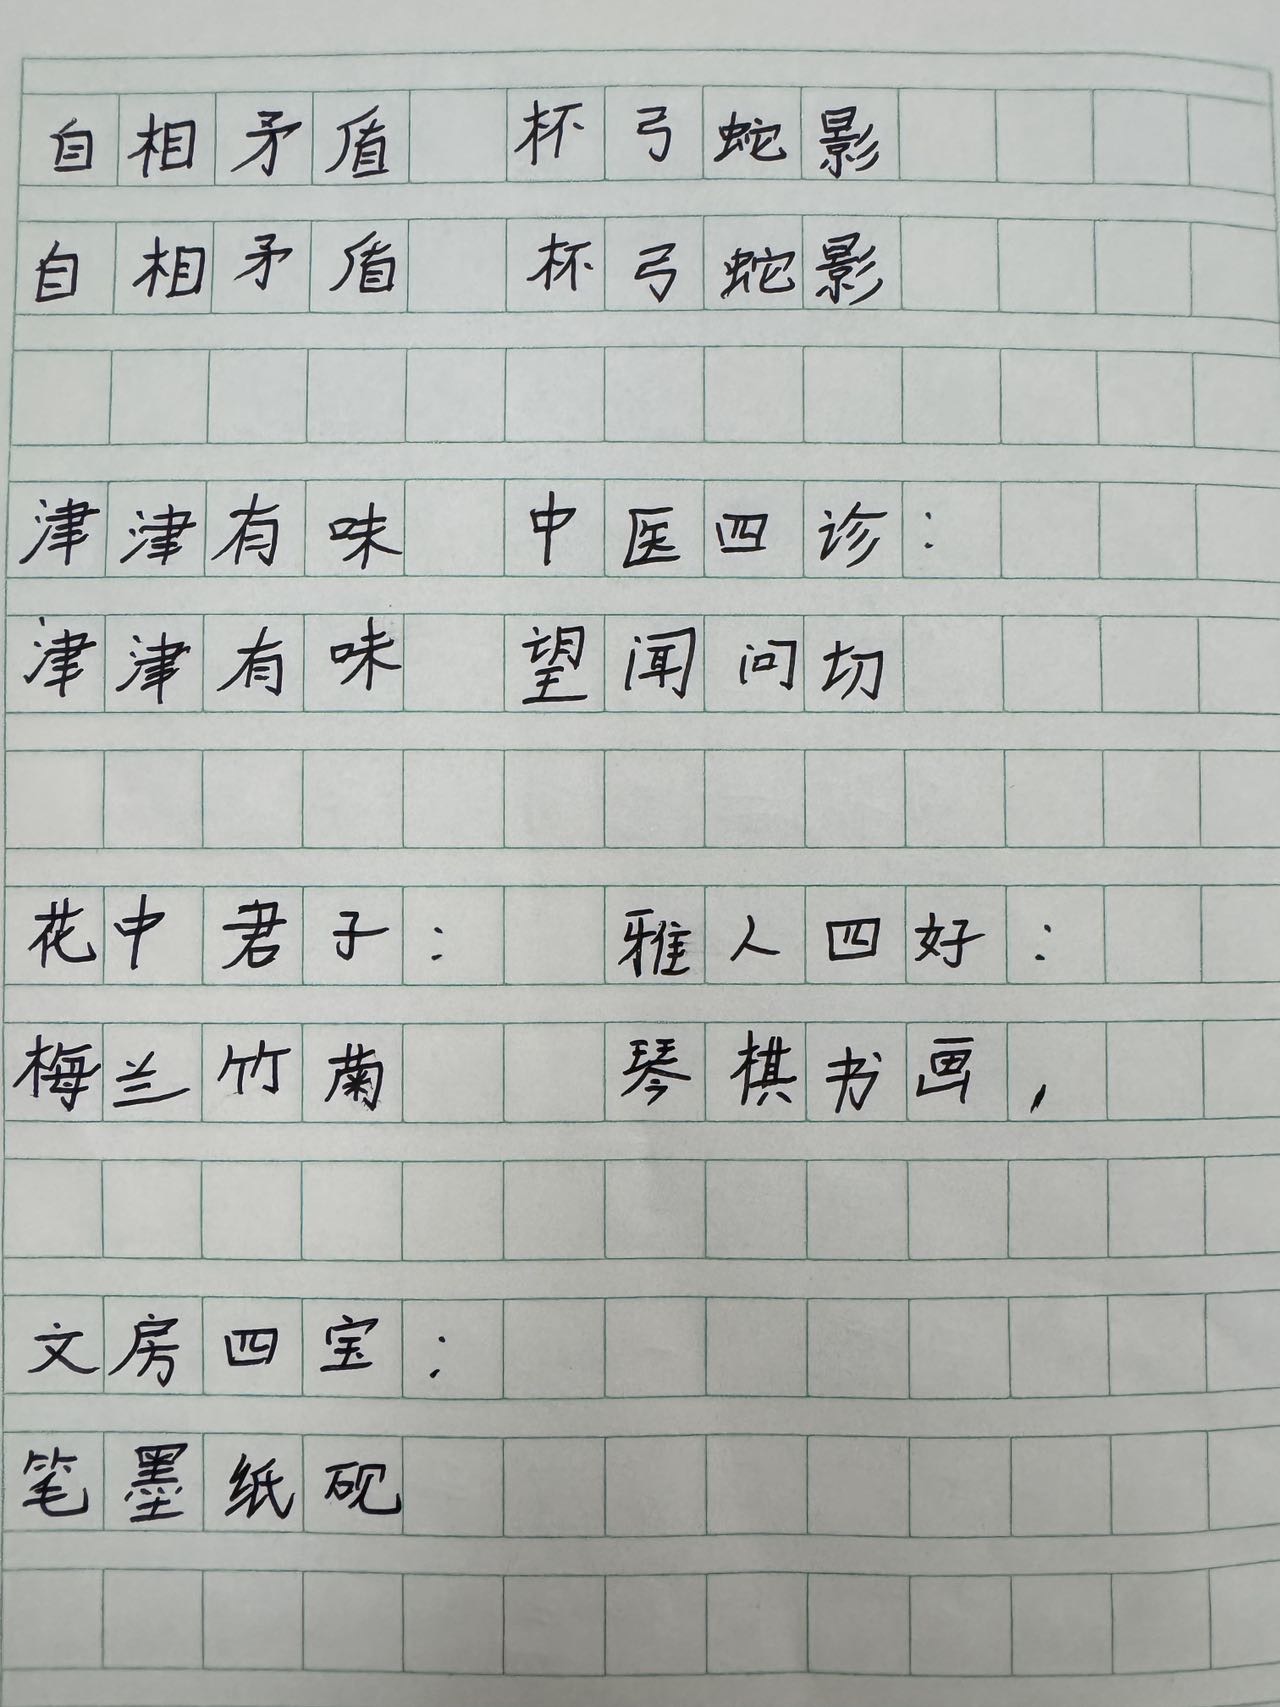 自相矛盾 杯弓蛇影
自相矛盾 杯弓蛇影
津津有味 中医四诊：
津津有味 望闻问切
花中君子： 雅人四好：
梅兰竹菊 琴棋书画，
文房四宝：
笔墨纸砚